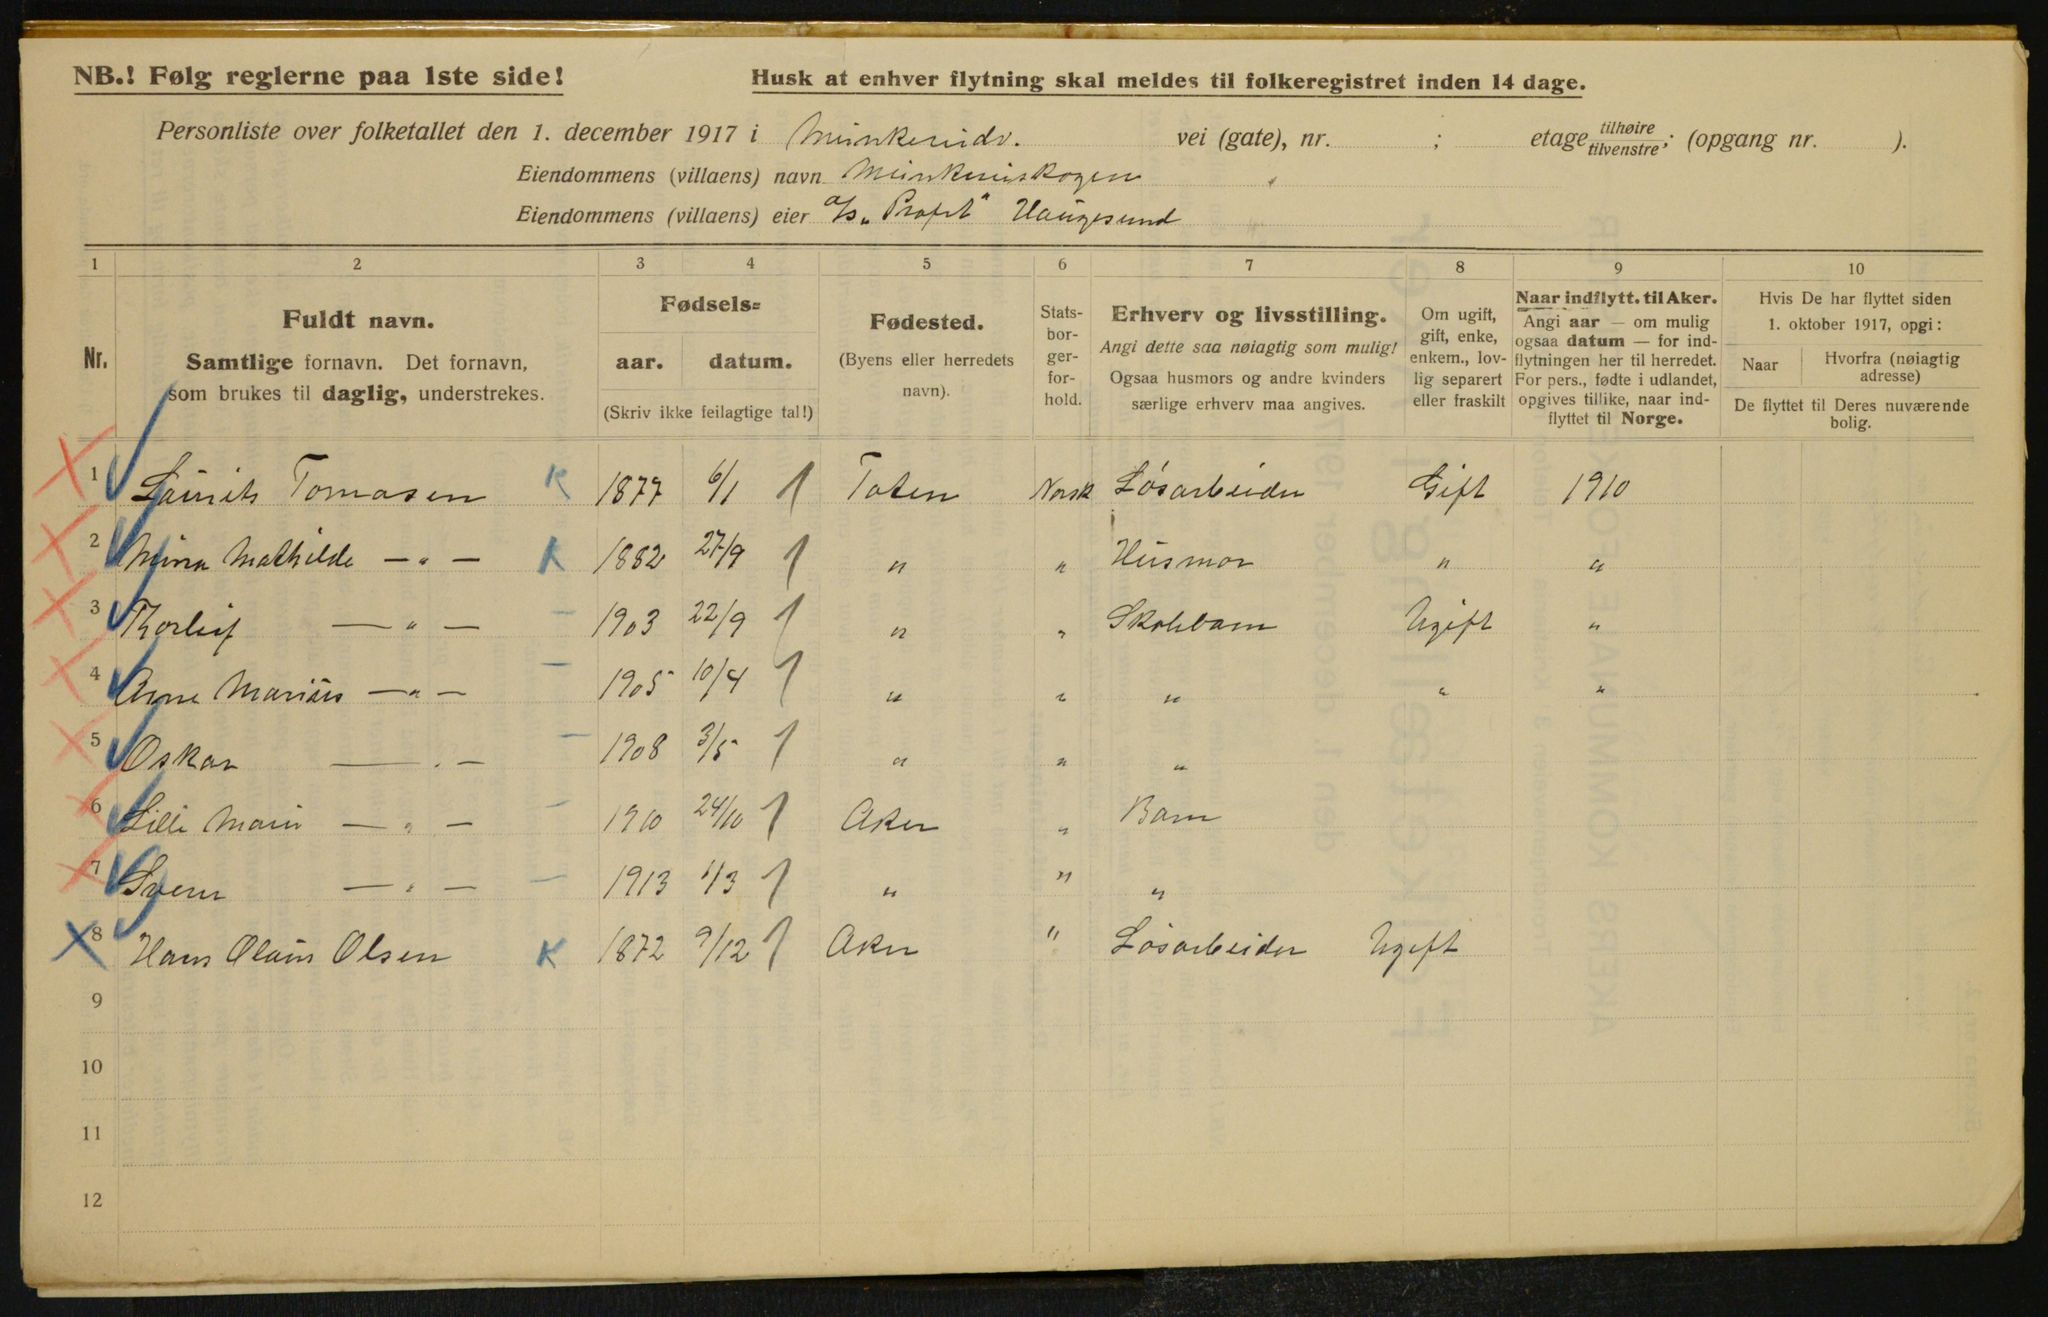 NB.! Følg reglerne paa 1ste side!
Husk at enhver flytning skal meldes til folkeregistret inden 14 dage.
Personliste over folketallet den 1. december 1917 i Munkerudv. vei (gate), nr. ; etage tilhøire tilvenstre; (opgang nr. ).
Eiendommens (villaens) navn Munkerudskogen
Eiendommens (villaens) eier a/s „Profit" Haugesund
1 2 3 4 5 6 7 8 9 10
Nr.
Fuldt navn.
Samtlige fornavn. Det fornavn,
som brukes til daglig, understrekes.
Fødsels=
aar. datum.
(Skriv ikke feilagtige tal!)
Fødested.
(Byens eller herredets
navn).
Stats-
bor-
ger-
for-
hold.
Erhverv og livsstilling.
Angi dette saa nøiagtig som mulig!
Ogsaa husmors og andre kvinders
særlige erhverv maa angives.
Om ugift,
gift, enke,
enkem., lov-
lig separert
eller fraskilt
Naar indflytt. til Aker.
Angi aar — om mulig
ogsaa datum — for ind-
flytningen her til herredet.
For pers., fødte i udlandet,
opgives tillike, naar ind-
flyttet til Norge.
Hvis De har flyttet siden
1. oktober 1917, opgi:
Naar
Hvorfra (nøiagtig
adresse)
De flyttet til Deres nuværende
bolig.
1 Laurits Tomasen K 1877 6/1 Toten Norsk Løsarbeider Gift 1910
2 Mina Mathilde — „ — K 1882 27/9 „ „ Husmor „ „
3 Thorleif — „ — 1903 22/9 „ „ Skolebarn Ugift „
4 Arne Marius — „ — 1905 10/4 „ „ „ „ „
5 Oskar — „ — 1908 3/5 „ „ „
6 Lilli Marie — „ — 1910 24/10 Aker „ Barn
7 Svein — „ — 1913 1/3 „ „ „
8 Hans Olaus Olsen K 1872 9/12 Aker „ Løsarbeider Ugift
9
10
11
12